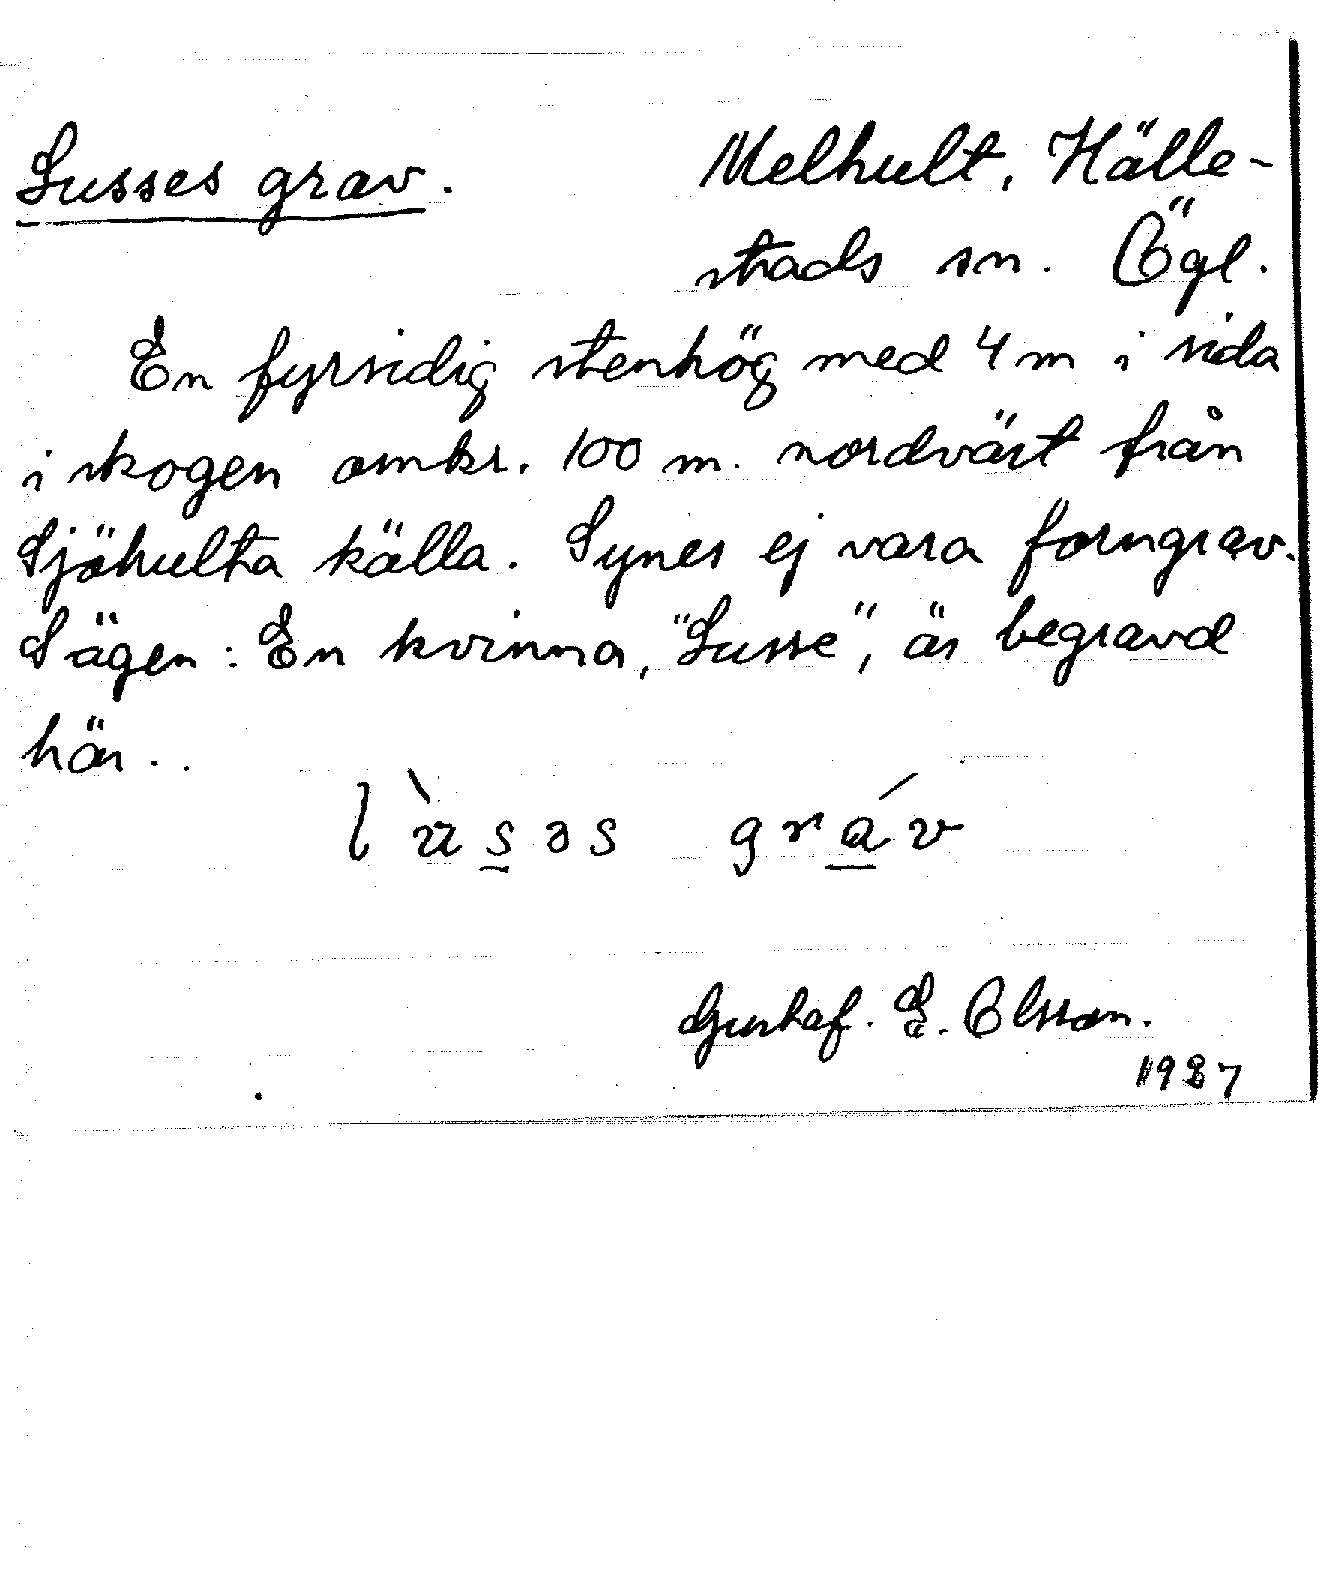 Lusses grav. Melhult, Hälle-
stads sn. Ögl.
En fyrsidig stenhög med 4 m i sida
i skogen omkr. 100 m. nordväst från
Sjöhulta källa. Synes ej vara forngrav.
Sägen: En kvinna, "Lusse", är begravd
här..
lùsəs gráv
Gustaf. E. Olsson.